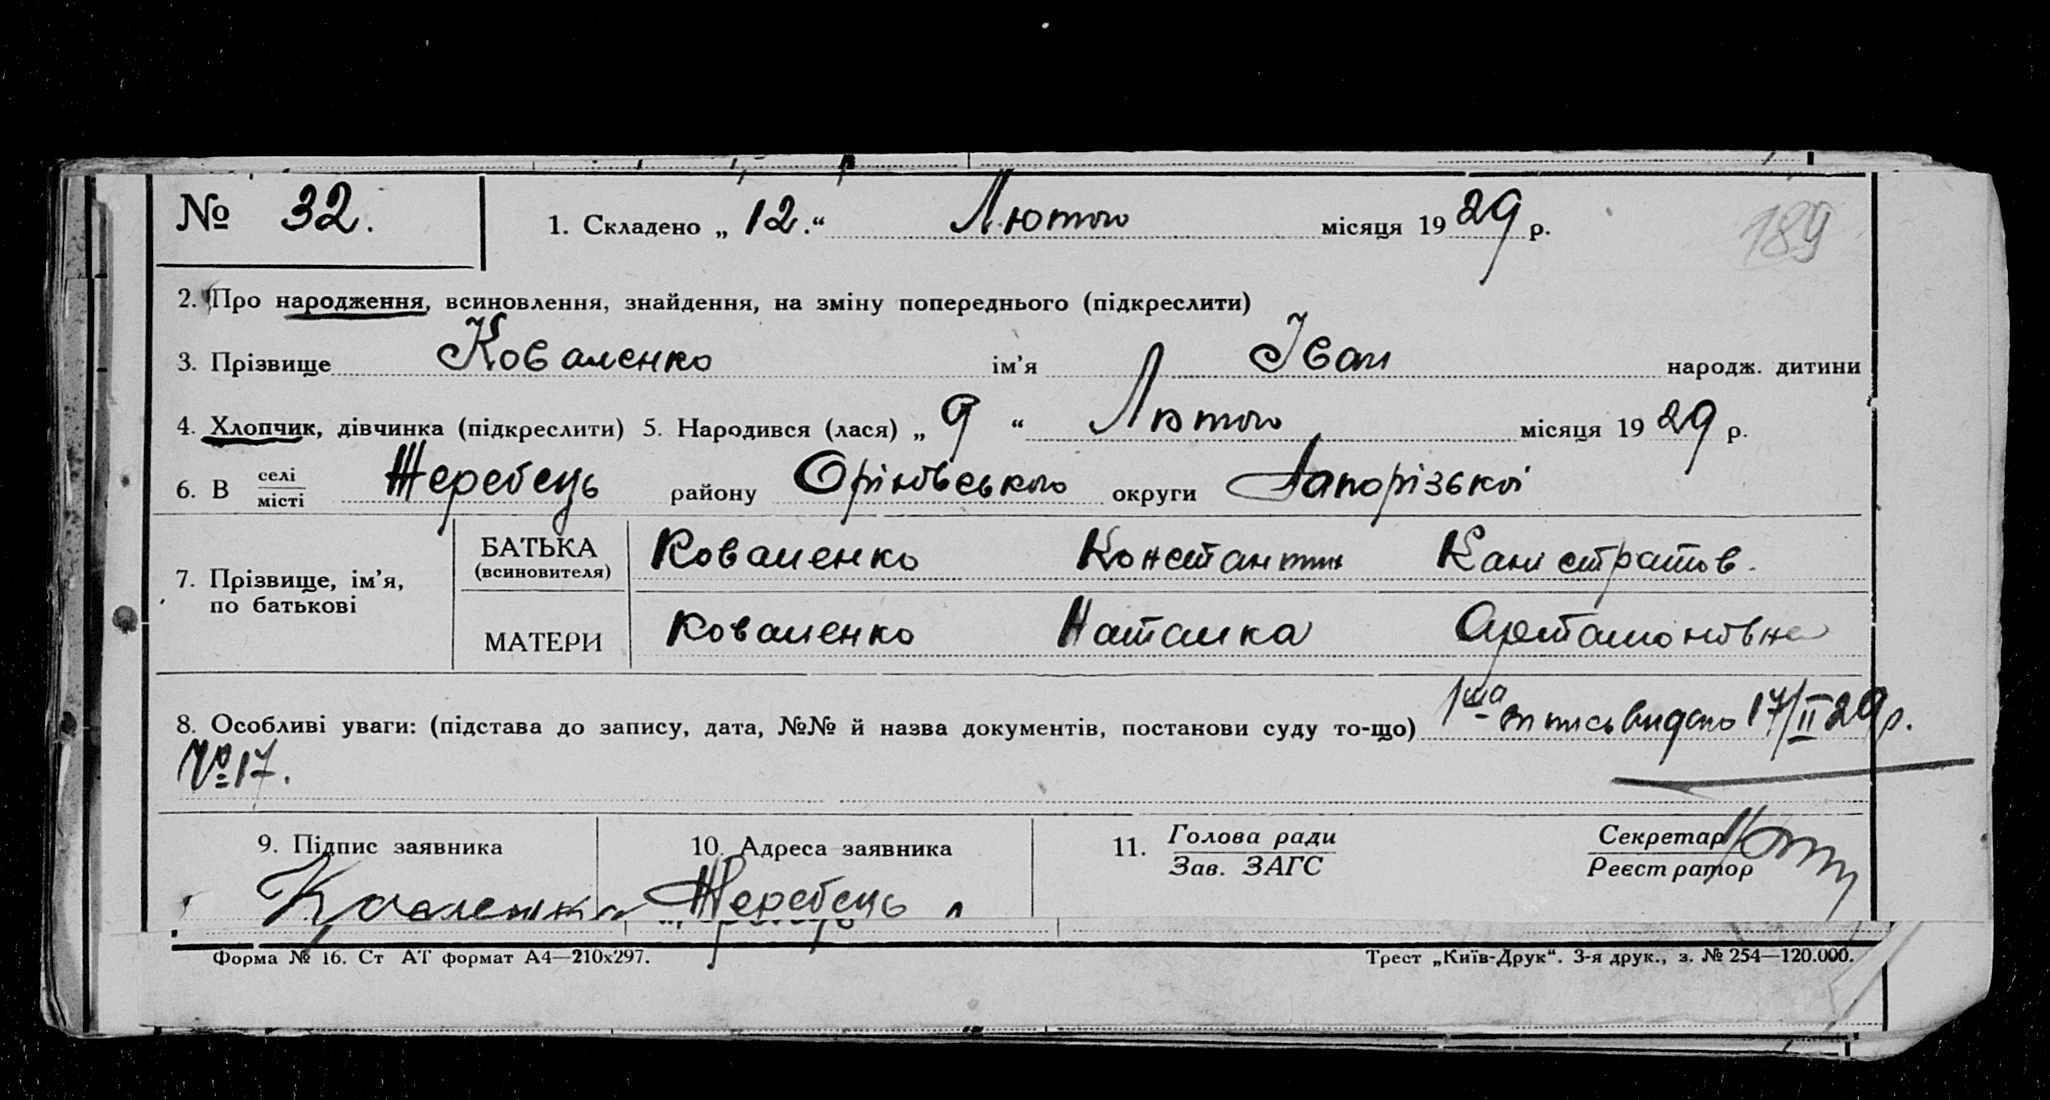 № 32. 1. Складено „ 12. “ Лютого місяця 1929 р. 189
2. Про народження, всиновлення, знайдення, на зміну попереднього (підкреслити)
3. Прізвище Коваленко ім'я Іван народж. дитини
4. Хлопчик, дівчинка (підкреслити) 5. Народився (лася) „ 9 “ Лютого місяця 1929 р.
6. В селі/місті Жеребець району Оріхівського округи Запорізької
7. Прізвище, ім'я, по батькові
БАТЬКА (всиновителя) Коваленко Константин Каністратов.
МАТЕРИ Коваленко Наталка Артамонівна
8. Особливі уваги: (підстава до запису, дата, №№ й назва документів, постанови суду то-що) 1ша випись видано 17/II 29 р.
№ 17.
9. Підпис заявника 10. Адреса заявника 11. Голова ради Секретар
Зав. ЗАГС Реєстратор
Коваленко Жеребець
Форма № 16. Ст АТ формат А4—210х297. Трест „Київ-Друк“. 3-я друк., з. № 254—120.000.